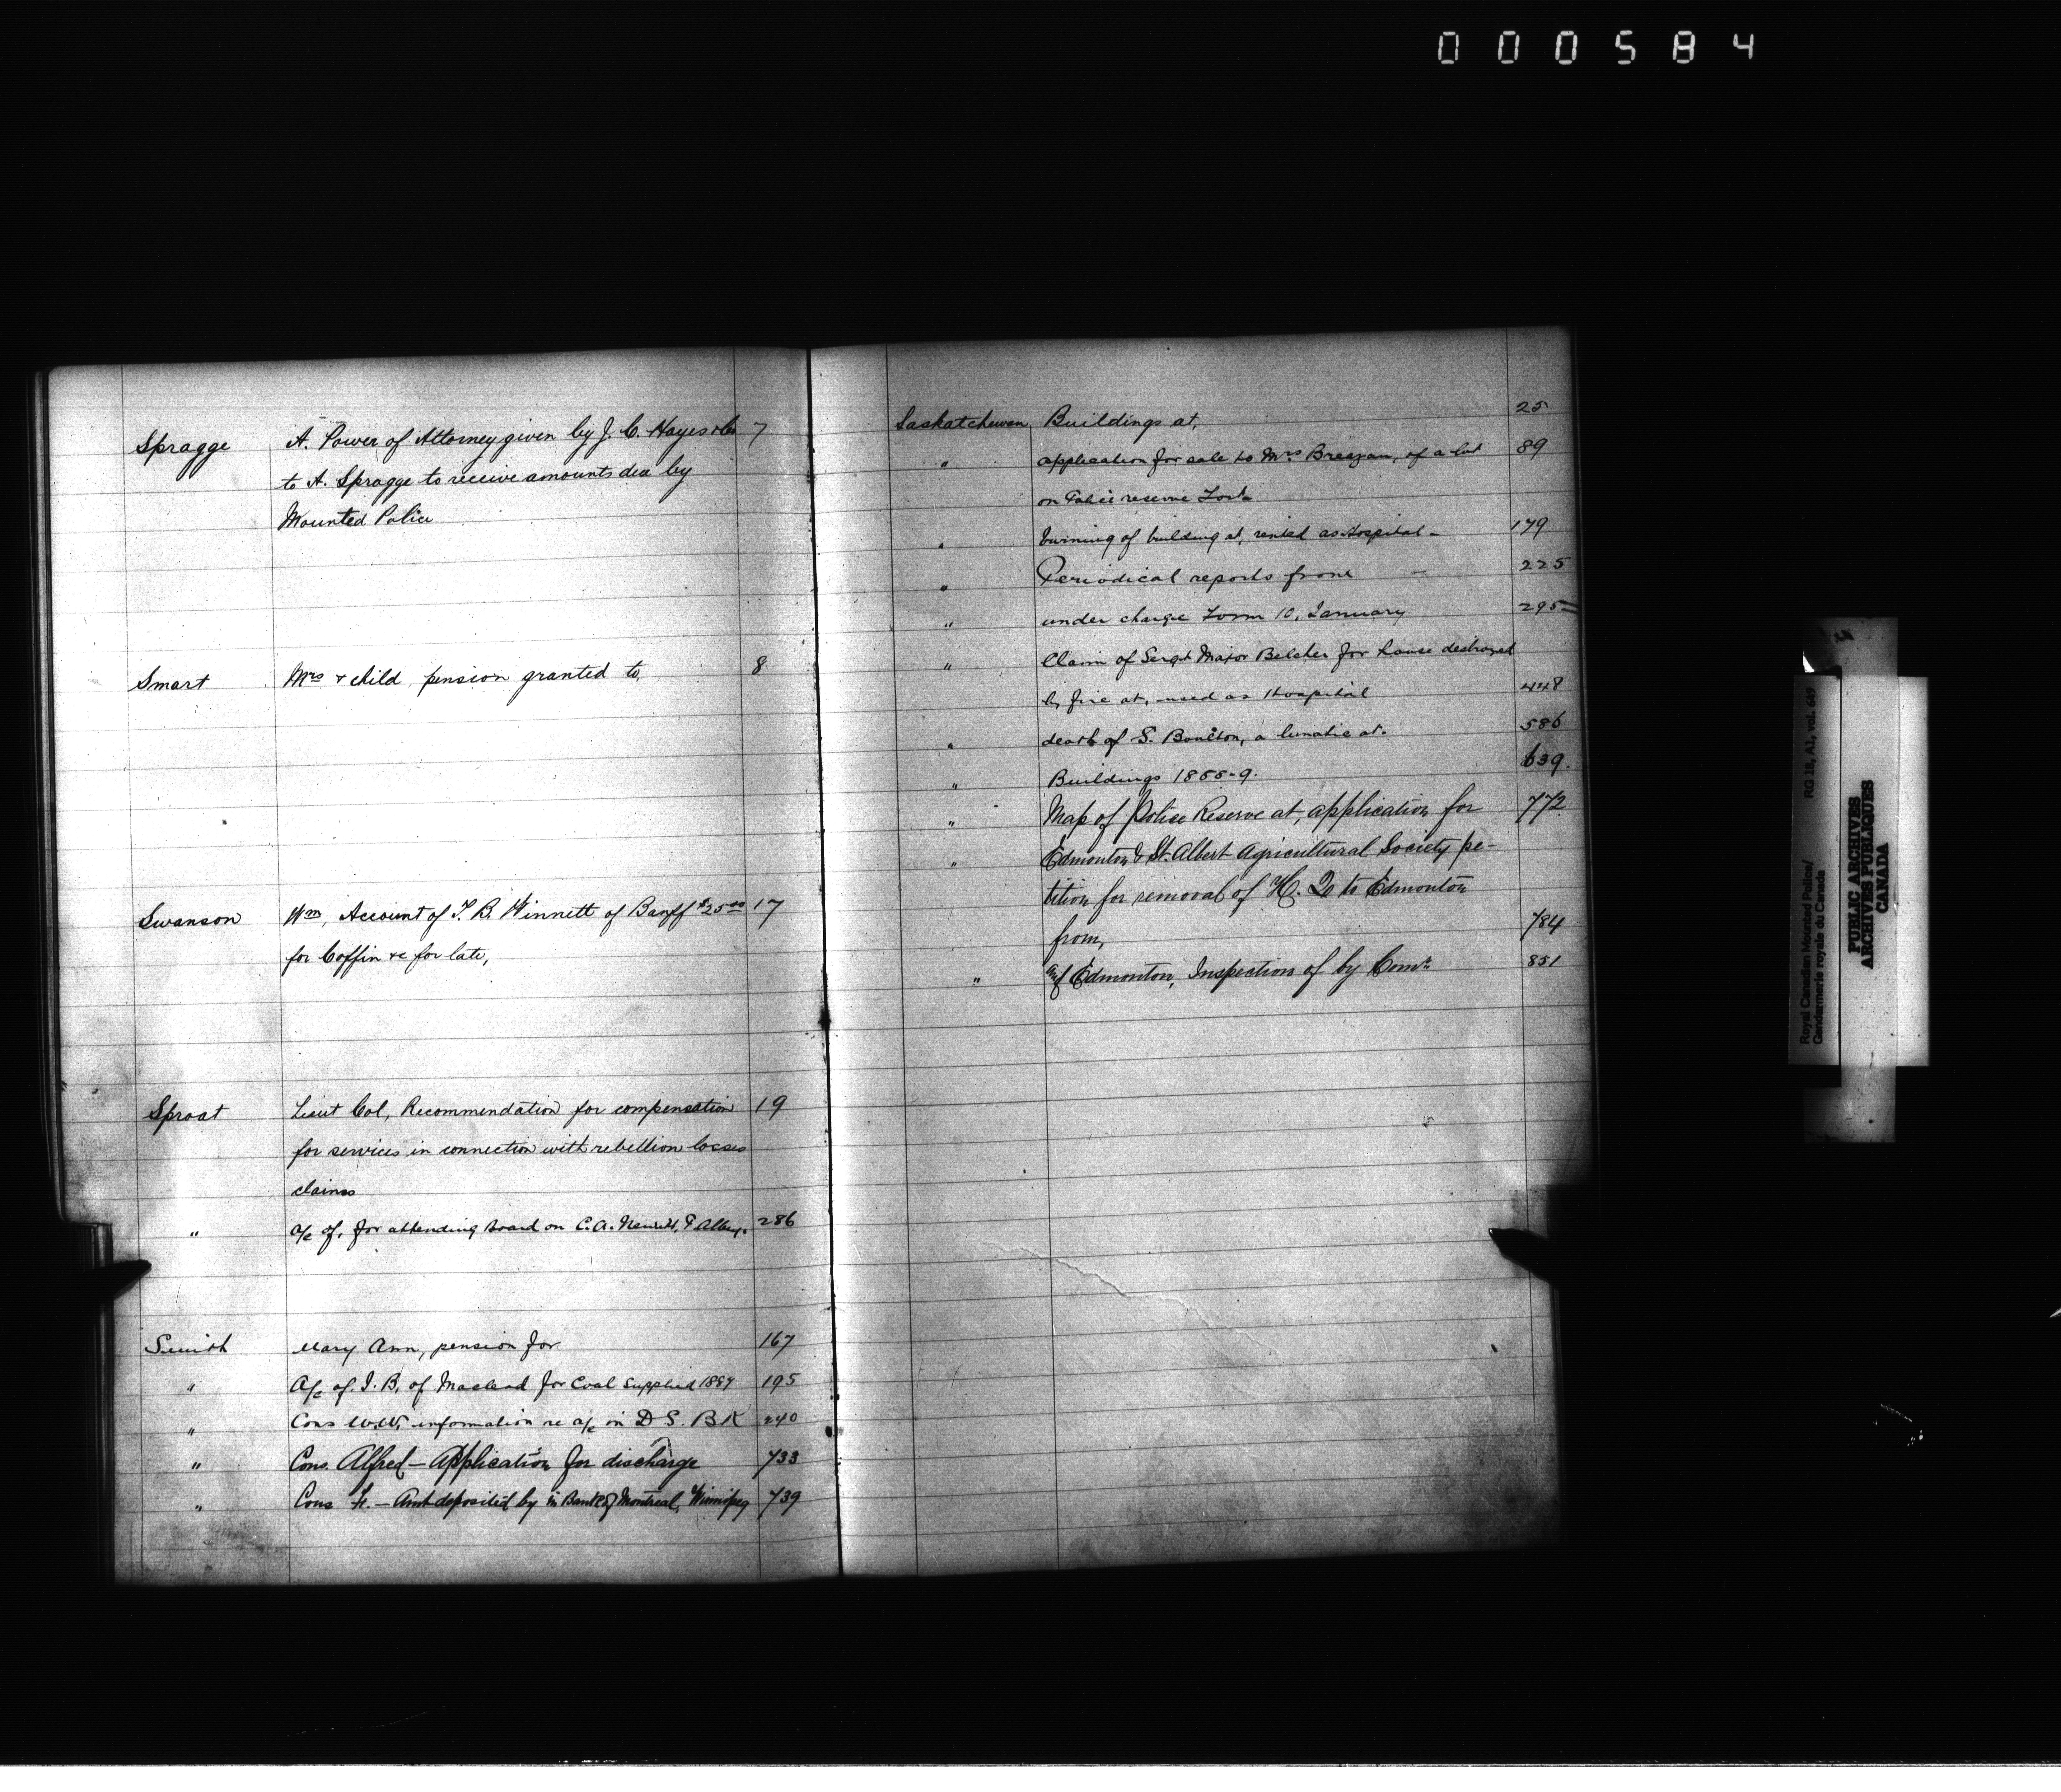 000584
Spragge A. Power of Attorney given by J. C. Hayes & Co 7
to A. Spragge to receive amounts due by
Mounted Police
Smart Mrs & child, pension granted to, 8
Swanson Wm, Account of F. B. Winnett of Banff $25.00 17
for Coffin &c for late,
Sproat Lieut Col, Recommendation for compensation 19
for services in connection with rebellion losses
claims
" a/c of, for attending board on C. A. P Albert. 286
Smith Mary Ann, pension for 167
" A/c of J. B. of Macleod for Coal supplied 1889 195
" Cons W.W. information re a/c in D S. BK 240
" Cons. Alfred – Application for discharge 733
" Cons – Amt deposited by in Bank of Montreal, Winnipeg 739
Saskatchewan Buildings at, 25
" application for sale to Mrs of a lot 89
on Police reserve Fort
" burning of building at, rented as Hospital – 179
" Periodical reports from 225
" under charge Form 10, January 295
" Claim of Sergt Major Belcher for house destroyed
by fire at, used as Hospital 448
" death of S. Boulton, a lunatic at. 586
" Buildings 1888-9. 639.
" Map of Police Reserve at, application for 772
" Edmonton & St. Albert Agricultural Society pe-
tition for removal of H. Q to Edmonton
from, 784
" and Edmonton, Inspection of by Comr 851
Royal Canadian Mounted Police/ RG 18, A1, vol. 649
Gendarmerie royale du Canada
PUBLIC ARCHIVES
ARCHIVES PUBLIQUES
CANADA